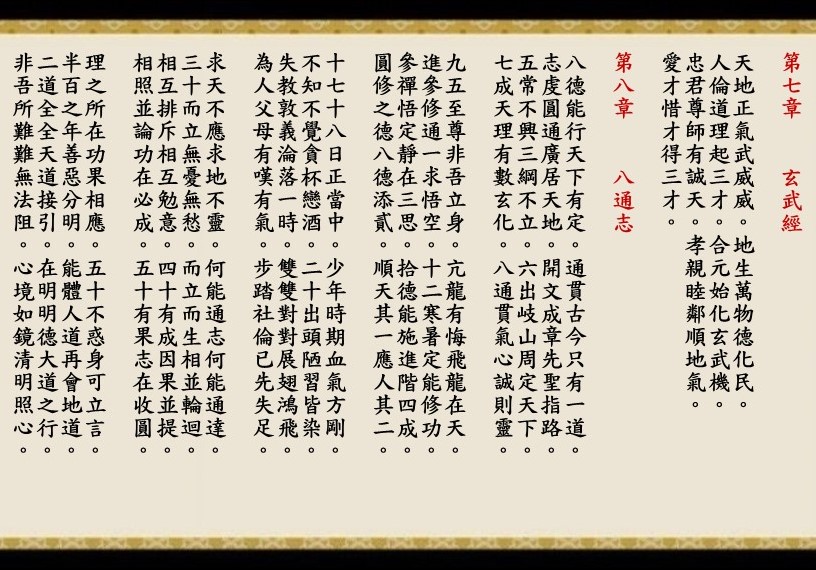 第七章　玄武經
天地正氣武威威。地生萬物德化民。
人倫道理起三才。合元始化玄武機。
忠君尊師有誠天。孝親睦鄰順地氣。
愛才惜才得三才。
第八章　八通志
八德能行天下有定。通貫古今只有一道。
志虔圓通廣居天地。開文成章先聖指路。
五常不興三綱不立。六出岐山周定天下。
七成天理有數玄化。八通貫氣心誠則靈。
九五至尊非吾立身。亢龍有悔飛龍在天。
進參修通一求悟空。十二寒暑定能修功。
參禪悟定靜在三思。拾德能施進階四成。
圓修之德八德添貳。順天其一應人其二。
十七十八日正當中。少年時期血氣方剛。
不知不覺貪杯戀酒。二十出頭陋習皆染。
失教敦義淪落一時。雙雙對對展翅鴻飛。
為人父母有嘆有氣。步踏社倫已先失足。
求天不應求地不靈。何能通志何能通達。
三十而立無憂無愁。而立而生相並輪迴。
相互排斥相互勉意。四十有成因果並提。
相照並論功在必成。五十有果志在收圓。
理之所在功果相應。五十不惑身可立言。
半百之年善惡分明。能體人道再會地道。
二道全全天道接引。在明明德大道之行。
非吾所難難無法阻。心境如鏡清明照心。